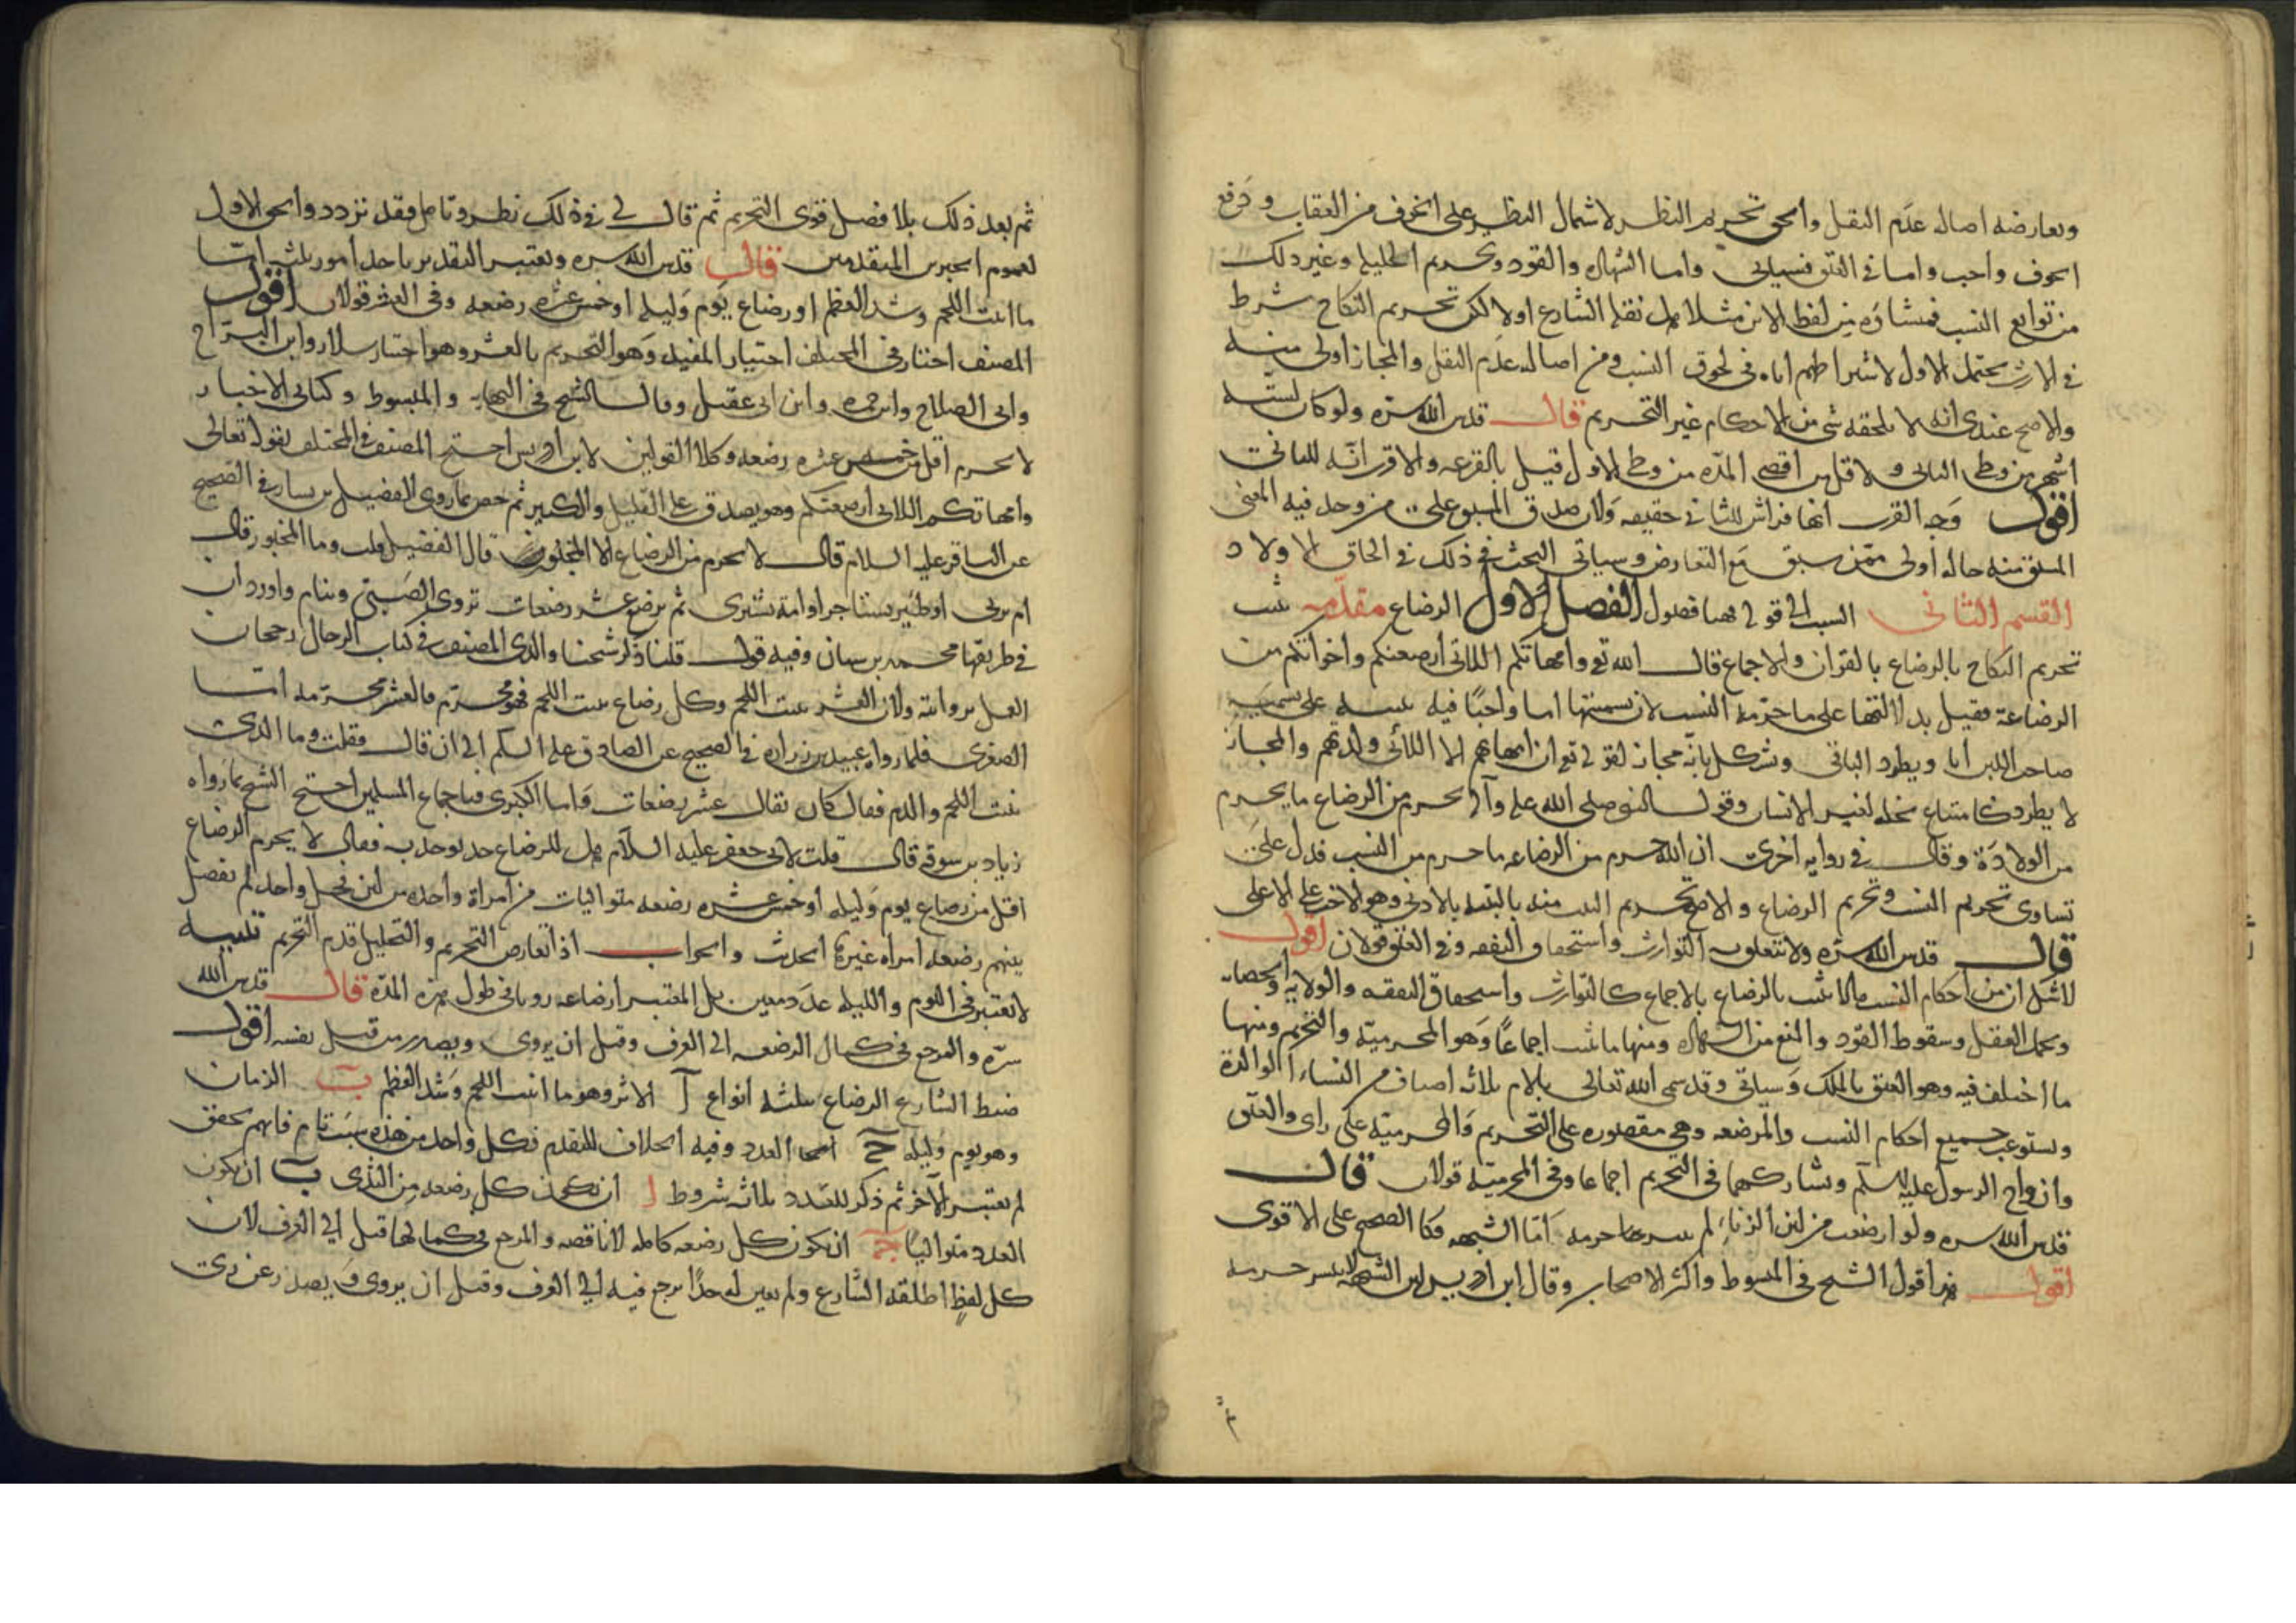 ويعارضه اصالة عدم النقل والحق تحريم النظر لاشتمال النظر على الخوف من العقاب ودفع
الخوف واجب واما في العتق فسياتي واما الشهادة والقود وتحريم الحليلة وغير ذلك
من توابع النسب فمنشاؤه من لفظ الابن مثلا هل نقله الشارع اولا لكن تحريم النكاح شرط
في الارث يحتمل الاول لاشتراطهم اياه في لحوق النسب ومن اصالة عدم النقل والمجاز اولى منه
والاصح عندي انه لا يلحقه شئ من الاحكام غير التحريم قال قدس الله سره ولو كان لستة
اشهر من وطى الثاني ولاقل من اقصى المدة من وطى الاول قيل بالقرعة والاقرب انه للثاني
اقول وجه القرب انها فراش للثاني حقيقة ولان صدق المشتق على من وجد فيه المعنى
المشتق منه حاله اولى ممن سبق مع التعارض وسياتي البحث في ذلك في الحاق الاولاد
القسم الثاني السبب الحقوقي هنا فصول الفصل الاول الرضاع مقدمة ثبت
تحريم النكاح بالرضاع بالقران والاجماع قال الله تع وامهاتكم اللاتي ارضعنكم واخواتكم من
الرضاعة فقيل بدلالتها على ما حرمه النسب لان تسميتها اما واختا فيه تنبيه على تسمية
صاحب اللبن ابا ويطرد الباقي ويشكل بانه مجاز لقوله تع ان امهاتهم الا اللائي ولدنهم والمجاز
لا يطرد كامتناع نخلة لغير الانسان وقول النبي صلى الله عليه وآله يحرم من الرضاع ما يحرم
من الولادة وقال في رواية اخرى ان الله حرم من الرضاعة ما حرم من النسب فدل على
تساوي تحريم النسب وتحريم الرضاع والاصح تحريم البنت منه بالتنبيه بالادنى وهو الاخت على الاعلى
قال قدس الله سره ولا تتعلق به التوارث واستحقاق النفقة وفي العتق قولان اقول
لا شك ان من احكام النسب مالا يثبت بالرضاع بالاجماع كالتوارث واستحقاق النفقة والولاية والحضانة
وتحمل العقل وسقوط القود والمنع من الشهادة ومنها ما يثبت اجماعا وهو المحرمية والتحريم ومنها
ما اختلف فيه وهو العتق بالملك وسياتي وقد سمى الله تعالى بالام ثلاثة اصناف من النساء الوالدة
وتستوعب جميع احكام النسب والمرضعة وهي مقصورة على التحريم والمحرمية على راى والعتق
وازواج الرسول عليه السلم وتشاركهما في التحريم اجماعا وفي المحرمية قولان قال
قدس الله سره ولو ارضعت من لبن الزناء لم ينشر حرمة اما الشبهة فكالصحيح على الاقوى
اقول هذا قول الشيخ في المبسوط واكثر الاصحاب وقال ابن ادريس لبن الشبهة لا ينشر حرمة
ثم بعد ذلك بلا فصل قوى التحريم ثم قال لي في ذلك نظر وتامل فقد تردد والحق الاول
لعموم الخبرين المتقدمين قال قدس الله سره ويعتبر التقدير باحد امور ثلثة اما
ما انبت اللحم وشد العظم او رضاع يوم وليلة او خمس عشرة رضعة وفي العشر قولان اقول
المصنف اختار في المختلف اختيار المفيد وهو التحريم بالعشر وهو اختيار سلار وابن البراج
وابي الصلاح وابن حمزة وابن ابي عقيل وقال الشيخ في النهاية والمبسوط وكتابي الاخبار
لا يحرم اقل من خمس عشرة رضعة وكلا القولين لابن ادريس احتج المصنف في المختلف بقوله تعالى
وامهاتكم اللاتي ارضعنكم وهو يصدق على القليل والكثير ثم خص بما روى الفضيل بن يسار في الصحيح
عن الباقر عليه السلام قال لا يحرم من الرضاع الا المخبور قال الفضيل قلت وما المخبور قال
ام تربي او ظئر تستاجر او امة تشترى ثم ترضع عشر رضعات تروي الصبي وينام واورد ان
في طريقها محمد بن سنان وفيه قول قلنا ذكر شيخنا والدي المصنف في كتاب الرجال رجحان
العمل بروايته ولان العشر تنبت اللحم وكل رضاع ينبت اللحم فهو محرم فالعشر محرمة اما
الصغرى فلما رواه عبيد بن زرارة في الصحيح عن الصادق عليه السلم الى ان قال فقلت وما الذي
ينبت اللحم والدم فقال كان يقال عشر رضعات واما الكبرى فباجماع المسلمين احتج الشيخ بما رواه
زياد بن سوقة قال قلت لابي جعفر عليه السلام هل للرضاع حد يوخذ به فقال لا يحرم الرضاع
اقل من رضاع يوم وليلة او خمس عشرة رضعة متواليات من امراة واحدة من لبن فحل واحد لم يفصل
بينهم رضعة امراة غيرها الحديث والجواب اذا تعارض التحريم والتحليل قدم التحريم تنبيه
لا يعتبر في اليوم والليلة عدد معين بل المعتبر ارضاعه روياً في طول هذه المدة قال قدس الله
سره والمرجع في كمال الرضعة الى العرف وقيل ان يروى ويصدر من قبل نفسه اقول
ضبط الشارع الرضاع بثلثة انواع آ الاثر وهو ما انبت اللحم وشد العظم ب الزمان
وهو يوم وليلة ج العدد وفيه الخلاف المتقدم فكل واحد من هذه سبب تام فايهم تحقق
لم يعتبر الآخر ثم ذكر للعدد ثلاثة شروط ا ان تكون كل رضعة من الثدي ب ان يكون
العدد متواليا ج ان يكون كل رضعة كاملة لا ناقصة والمرجع في كمالها قيل الى العرف لان
كل لفظ اطلقه الشارع ولم يعين له حدا يرجع فيه الى العرف وقيل ان يروى ويصدر عن ري